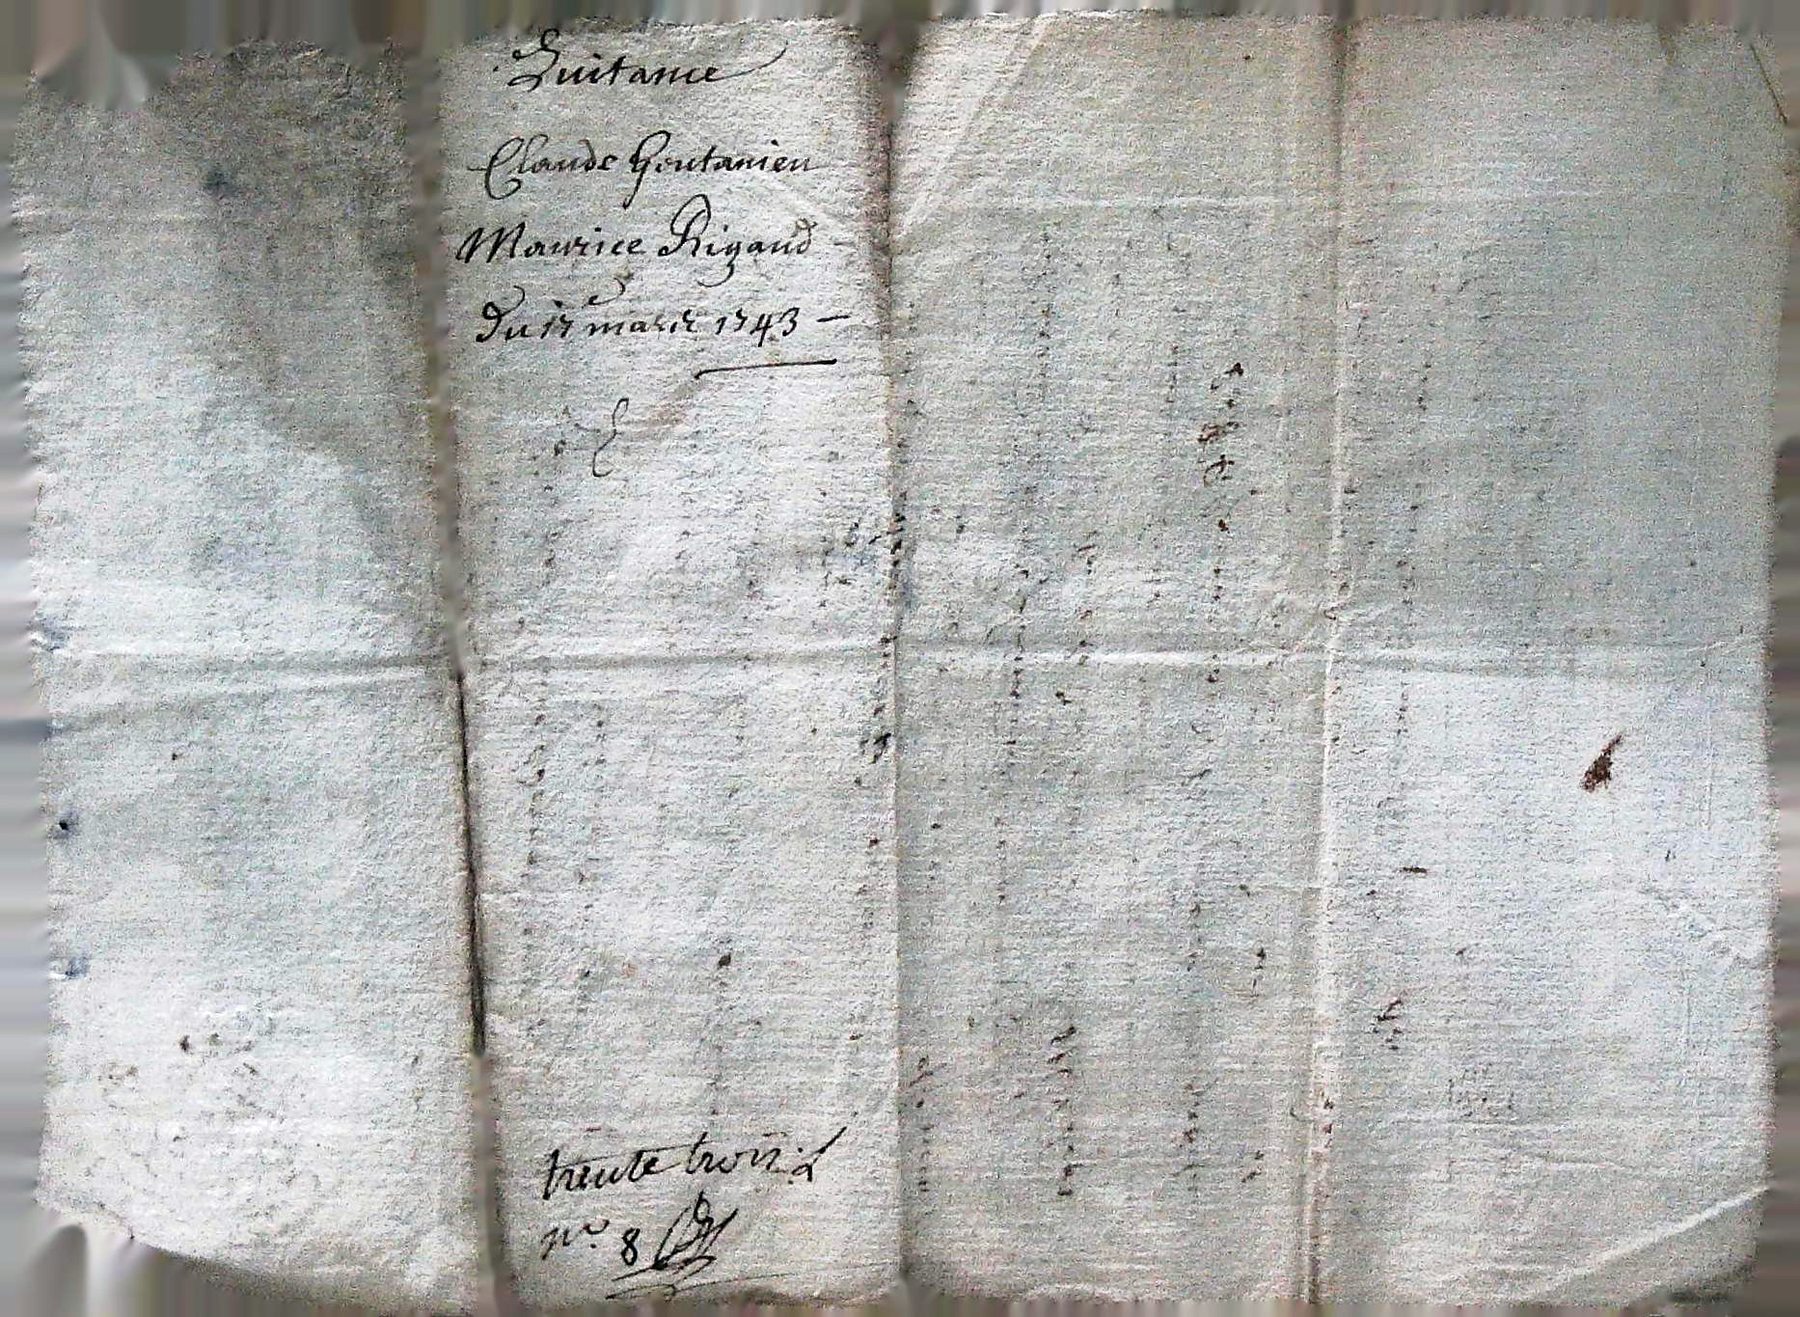 Quitance
Claude Goutanieu
Maurice Rigaud
Du 17 mars 1743
trente trois
nº. 8